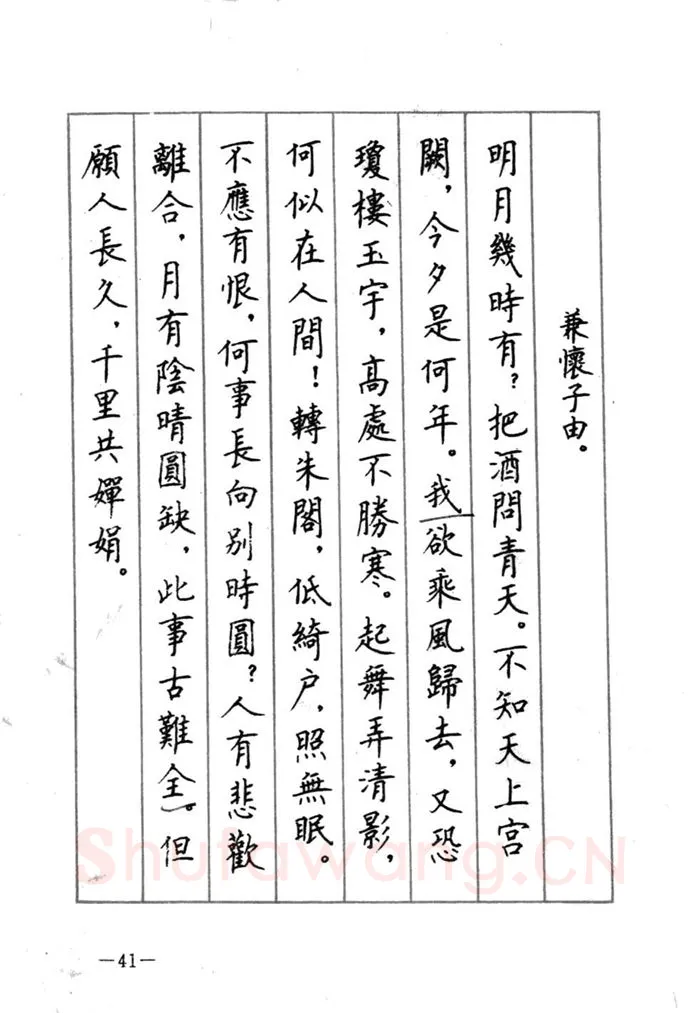 兼懷子由。
明月幾時有？把酒問青天。不知天上宮
闕，今夕是何年。我欲乘風歸去，又恐
瓊樓玉宇，高處不勝寒。起舞弄清影，
何似在人間！轉朱閣，低綺户，照無眠。
不應有恨，何事長向别時圓？人有悲歡
離合，月有陰晴圓缺，此事古難全。但
願人長久，千里共嬋娟。
Shufawang.CN
—41—